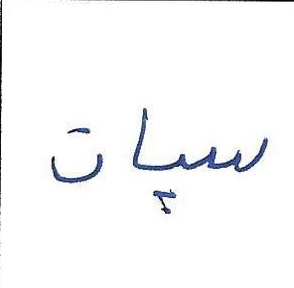 سپات